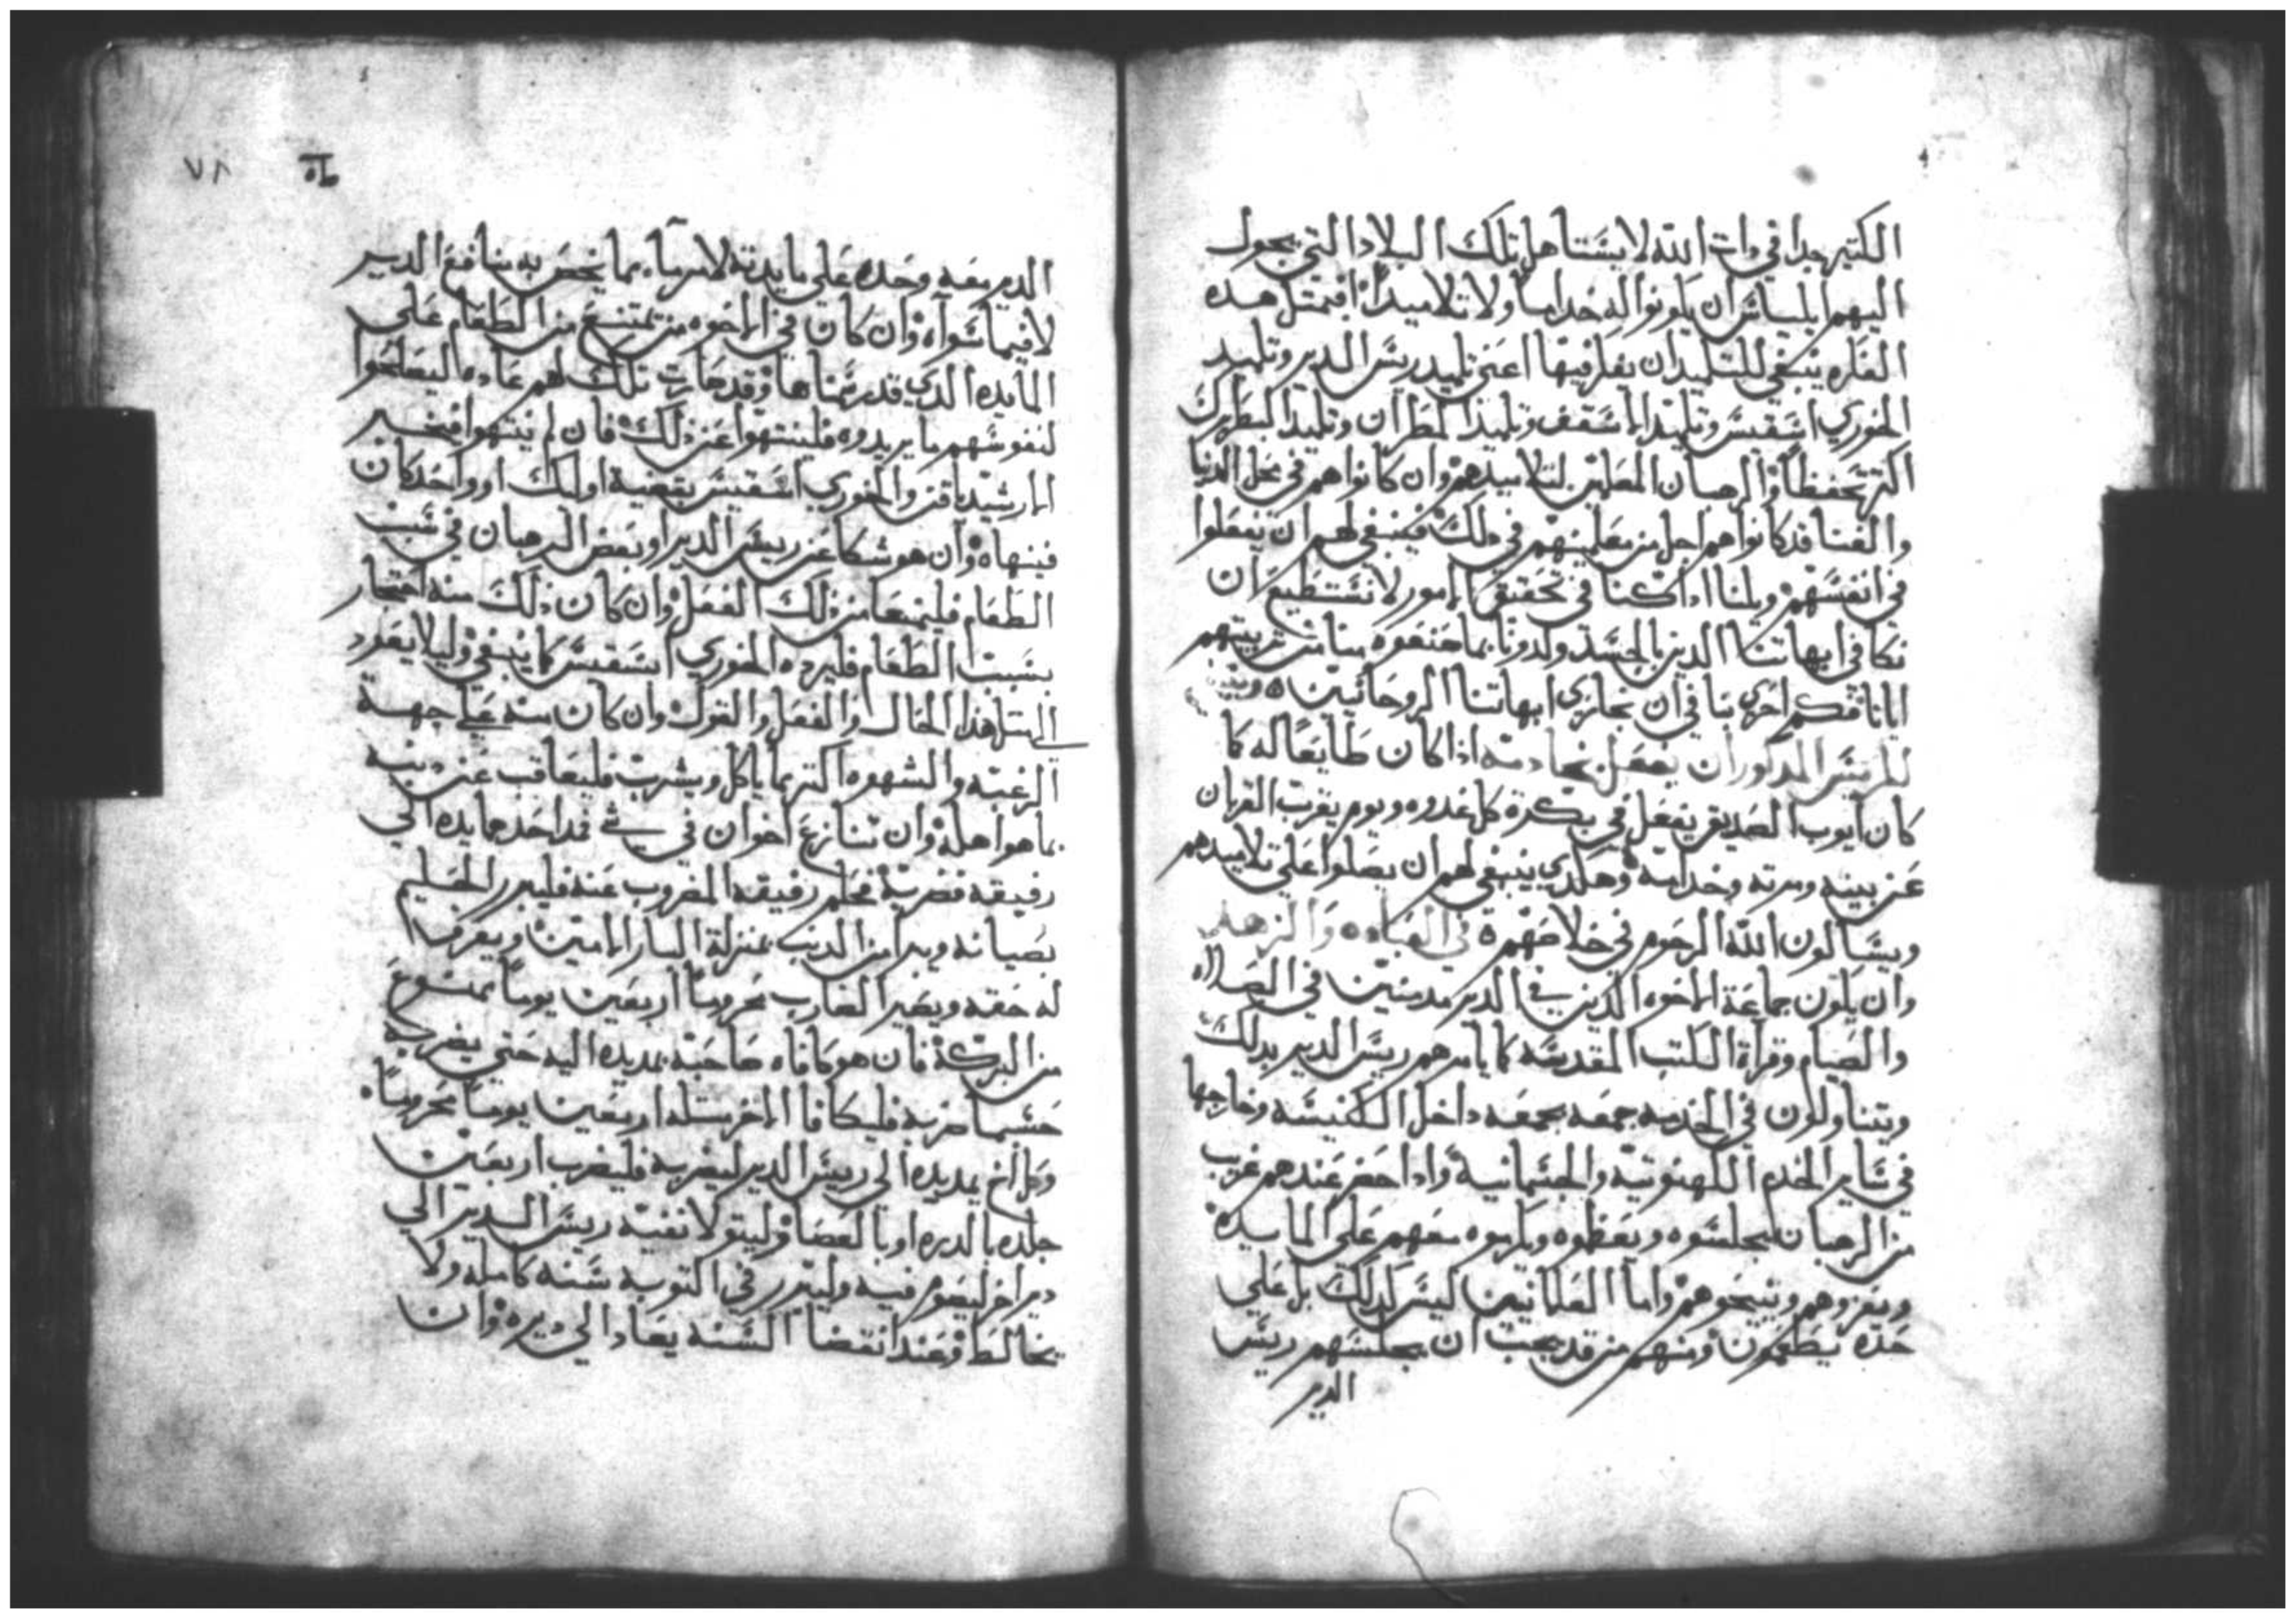 الكتير جدا في دات الله لا يستاهل تلك البلاد التي يحول
اليهم ابليشاش ان يكونوا له خداما ولا تلاميدا فبمتل هده
الفكره ينبغي للتلميد ان يفكر فيها اعني تلميد ريس الدير وتلميد
الخوري اسقفيس وتلميد الاسقف وتلميذ المطران وتلميذ البطريرك
اكتر تحفظا والرهبان المعلمين لتلاميدهم وان كانوا هم في محل الدنيا
والفنا فد كانوا هم اجل من معلمينهم في دلك فينبغي لهم ان يفعلوا
في انفسهم ويلنا اداكنا في تحقيق الامور لا نستطيع ان
نكافي ابهاتنا الدين بالجسد ولدونا بما صنعوه بنا من تربيتهم
ايانا فكم احرى بنا في ان نجازي ابهاتنا الروحانيين
للريس المدكور ان يفعل بخادمه اذا كان طايعا له كما
كان ايوب الصديق يفعل في بكرة كل غدوه ويوم يقرب القربان
عن بينه ومرته وخدامه وهكدي ينبغي لهم ان يصلوا على تلاميدهم
ويسالون الله الرحوم في خلاصهم في العباده والزهد
وان يكون جماعة الاخوه الدين في الدير مدمنين في الصلاه
والصيام وقراة الكتب المقدسه كما يامرهم ريس الدير بدلك
ويتناولون في الخدمه جمعه بجمعه داخل الكنيسه وخارجها
في ساير الخدم الكهنوتيه والجسمانية وادا حضر عندهم غريب
من الرهبان يجلسوه ويعظوه ويكرموه معهم على المايدة
ويعزوهم ويبيحوهم واما العلمانيين ليس كدلك بل على
حده يطعمون ومنهم من قد يجب ان يجلسهم ريس
الدير
٧٨
الدير معه وحده على مايدته لامر ما بما يخص به منافع الدير
لا فيما سواه وان كان في الاخوه من يمتنع من الطعام على
المايده الدي قد رسمناها وقد صارت تلك لهم عاده ليصلحوا
لنفوسهم ما يريدوه فلينتهوا عن ذلك فان لم ينتهوا فيخبر
الارشيدياقن والخوري اسقفيس بقضية اوليك او واحد كان
فينهاه وان هو شكا عن ريس الدير او بعض الرهبان في سبب
الطعام فليمنعا من ذلك الفعل وان كان ذلك منه احتجار
بسبب الطعام فليرده الخوري اسقفيس كما ينبغي وليلا يعود
الى متل هدا الحال والفعل والقول وان كان منه على جهة
الرغبه والشهوه اكتر مما ياكل ويشرب فليعاقب عن دنبه
بما هو اهله وان تنازع اخوان في شي فمد احدهما يده الى
رفيقه فضربه فحلم رفيقه المضروب عنه فليبرر الحليم
بصيانه ويبرا من الدنب بمنزلة البار الامين ويعرف
له حقه ويصير الضارب محروما اربعين يوما ممنوع
من البركة فان هو كافاه صاحبه بمد يده اليه حتى يضربه
حسبما ضربه فليكافا الاخر متله اربعين يوما محروما
وكل اخ يمد يده الى ريس الدير ليضربه فليضرب اربعين
جلده بالدره او بالعصا وليتولا نفيه ريس الدير الى
دير اخر ليصوم فيه وليتدرر في التوبه سنه كامله ولا
يخالط وعند انقضا السنه يعاد الى ديره وان